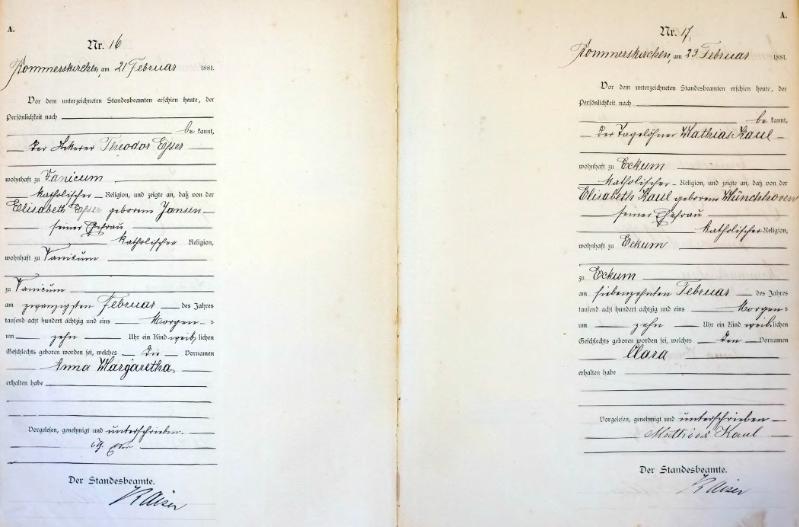 A.
Nr. 16
Rommerskirchen, am 21 Februar 1881.
Vor dem unterzeichneten Standesbeamten erschien heute, der
Persönlichkeit nach
be kannt,
der Theodor Esser
wohnhaft zu Vanicum
katholischer Religion, und zeigte an, daß von der
Elisabeth Esser geborenen Jansen
seiner Ehefrau
katholischer Religion,
wohnhaft zu Vanicum
zu Vanicum
am zwanzigsten Februar des Jahres
tausend acht hundert achtzig und eins Morgen-:
um zehn Uhr ein Kind weib lichen
Geschlechts geboren worden sei, welches den Vornamen
Anna Margaretha
erhalten habe
Vorgelesen, genehmigt und unterschrieben
Der Standesbeamte.
Kaiser
A.
Nr. 17
Rommerskirchen, am 23 Februar 1881.
Vor dem unterzeichneten Standesbeamten erschien heute, der
Persönlichkeit nach
be kannt,
der Tagelöhner Mathias Kaul
wohnhaft zu Eckum
katholischer Religion, und zeigte an, daß von der
Elisabeth Kaul geborenen Münchhoven
seiner Ehefrau
katholischer Religion,
wohnhaft zu Eckum
zu Eckum
am siebenzehnten Februar des Jahres
tausend acht hundert achtzig und eins Morgen-:
um zehn Uhr ein Kind weib lichen
Geschlechts geboren worden sei, welches den Vornamen
Clara
erhalten habe
Vorgelesen, genehmigt und unterschrieben
Mathias Kaul
Der Standesbeamte.
Kaiser